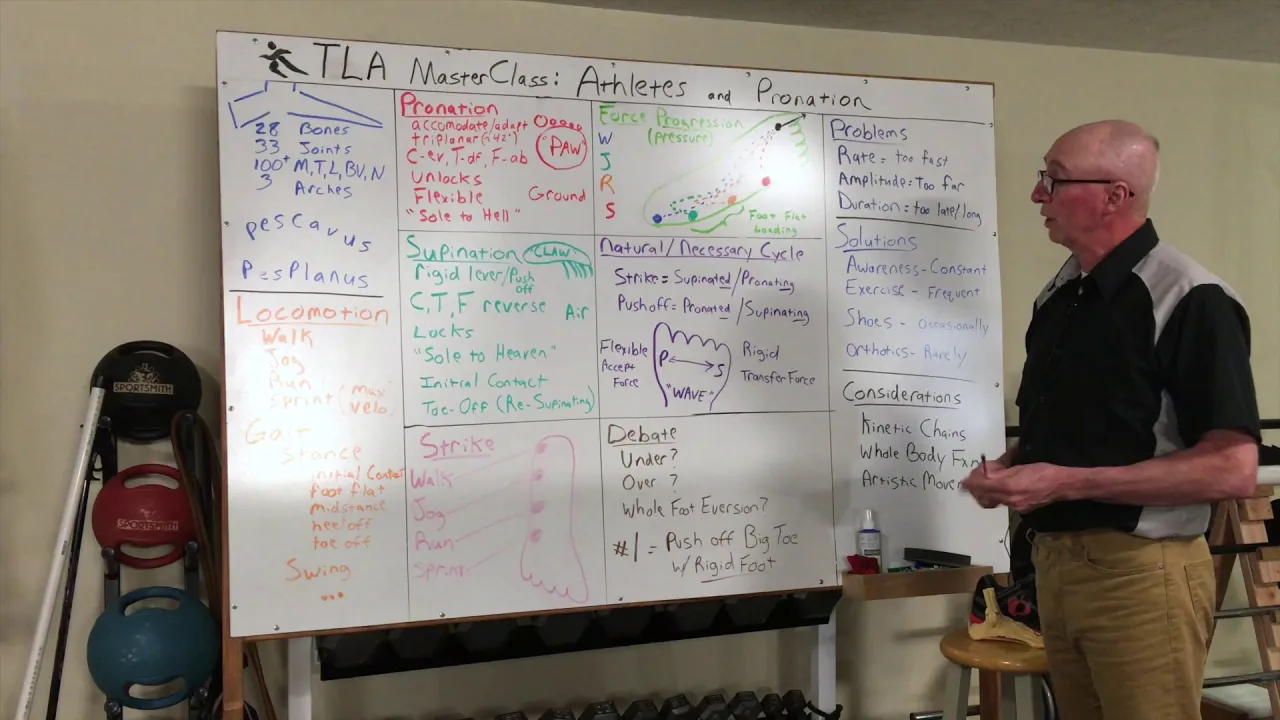 TLA MasterClass: Athletes and Pronation
28 Bones
33 Joints
100+ M, T, L, BV, N
3 Arches
pes Cavus
Pes Planus
Locomotion
Walk
Jog
Run
Sprint (max velo.
Gait
Stance
initial Contact
foot flat
midstance
heel off
toe off
Swing
...
Pronation
accomodate/adapt
triplanar (~42°)
"PAW"
C-ev, T-df, F-ab
Unlocks
Flexible Ground
"Sole to Hell"
Supination
CLAW
rigid lever/Push off
C, T, F reverse Air
Locks
"Sole to Heaven"
Initial Contact
Toe-Off (Re-Supinating)
Strike
Walk
Jog
Run
Sprint
Force Progression
(Pressure)
W
J
R
S
Foot Flat
Loading
Natural/Necessary Cycle
Strike = Supinated/Pronating
Pushoff = Pronated/Supinating
Flexible
Accept
Force
P S
"WAVE"
Rigid
Transfer Force
Debate
Under?
Over?
Whole Foot Eversion?
#1 = Push off Big Toe
w/ Rigid Foot
Problems
Rate = too fast
Amplitude = Too far
Duration = too late/long
Solutions
Awareness - Constant
Exercise - Frequent
Shoes - Occasionally
Orthotics - Rarely
Considerations
Kinetic Chains
Whole Body Fxn
Artistic Movem
SPORTSMITH
SPORTSMITH
SPORTSMITH